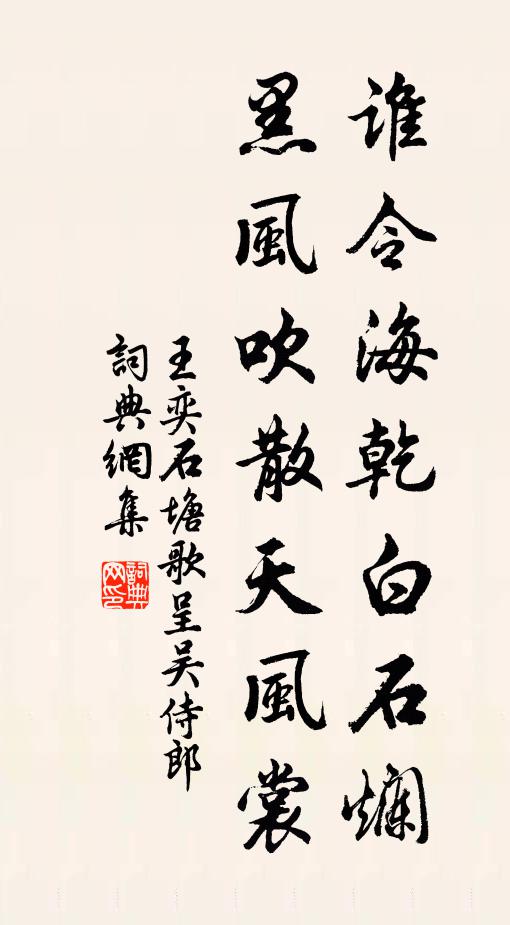 誰令海乾白石爛
黑風吹散天風裳
王奕石塘歌呈吴侍郎
詞典網集
詞典网印